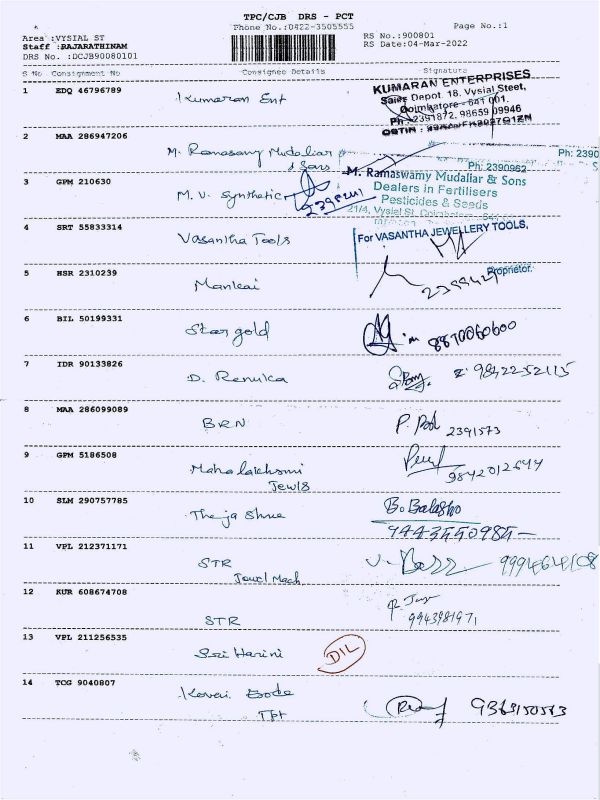 TPC/CJB DRS - PCT
Phone No.:0422-3505555
Page No.:1
Area :VYSIAL ST
Staff :RAJARATHINAM
DRS No. :DCJB90080101
RS No.:900801
RS Date:04-Mar-2022
S No Consignment No Consignee Details Signature
1 EDQ 46796789 Kumaran Ent
KUMARAN ENTERPRISES
Sales Depot. 18, Vysial Steet,
Coimbatore - 641 001.
Ph : 2391872, 98659 09946
2 MAA 286947206 M. Ramasamy Mudaliar
& Sons
Ph: 2390
Ph: 2390962
M. Ramaswamy Mudaliar & Sons
Dealers in Fertilisers
Pesticides & Seeds
21/4, Vysial St.
3 GPM 210630 M.V. Synthetic
4 SRT 55833314 Vasantha Tools
For VASANTHA JEWELLERY TOOLS,
Proprietor.
5 HSR 2310239 Mankai
6 BIL 50199331 Star gold
8870060600
7 IDR 90133826 D. Renuka
9842252115
8 MAA 286099089 BRN
2391573
9 GPM 5186508 Mahalakhsmi
Jewls
9842012644
10 SLM 290757785 Theja Shree
11 VPL 212371171 STR
Jewl Mach
12 KUR 608674708 STR
9943981971
13 VPL 211256535 Sri Harini DIL
14 TCG 9040807 Kovai
Tpt